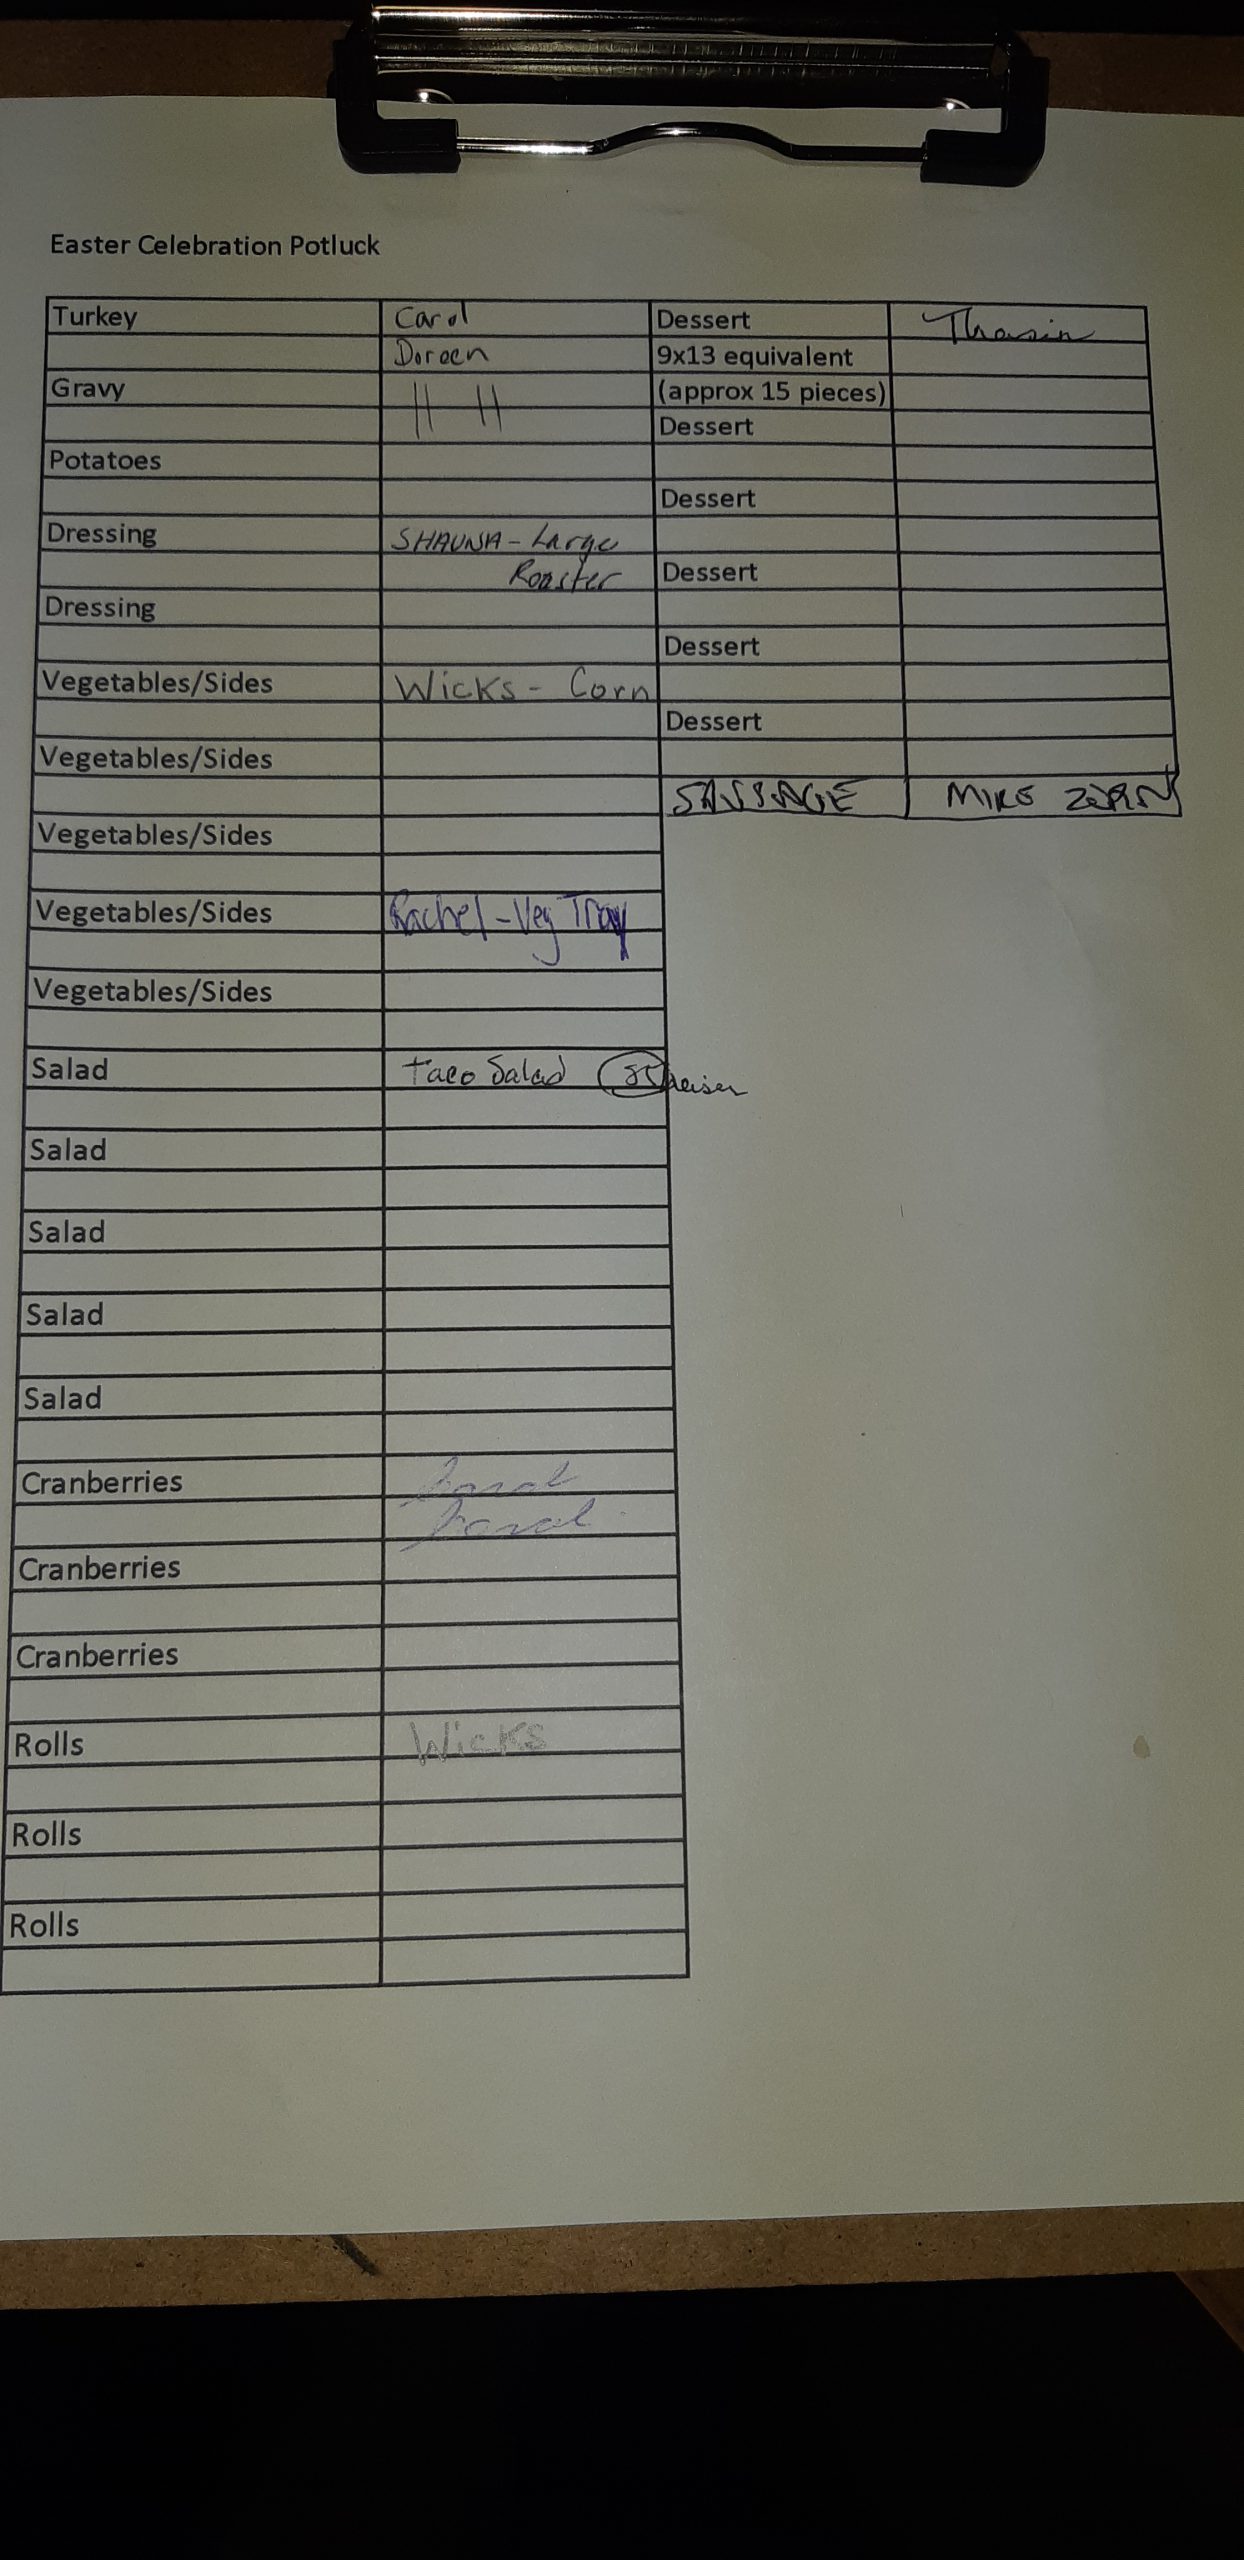 Easter Celebration Potluck
Turkey Carol Dessert
Doreen 9x13 equivalent
Gravy " " (approx 15 pieces)
Dessert
Potatoes
Dessert
Dressing SHAUNA - Large
Roaster Dessert
Dressing
Dessert
Vegetables/Sides Wicks - Corn
Dessert
Vegetables/Sides
SAUSAGE MIKE ZORN
Vegetables/Sides
Vegetables/Sides Rachel - Veg Tray
Vegetables/Sides
Salad Taco Salad
Salad
Salad
Salad
Salad
Cranberries Carol
Carol
Cranberries
Cranberries
Rolls Wicks
Rolls
Rolls